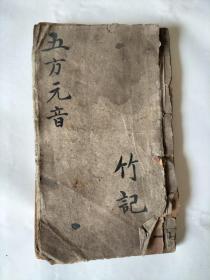 五方元音
竹記